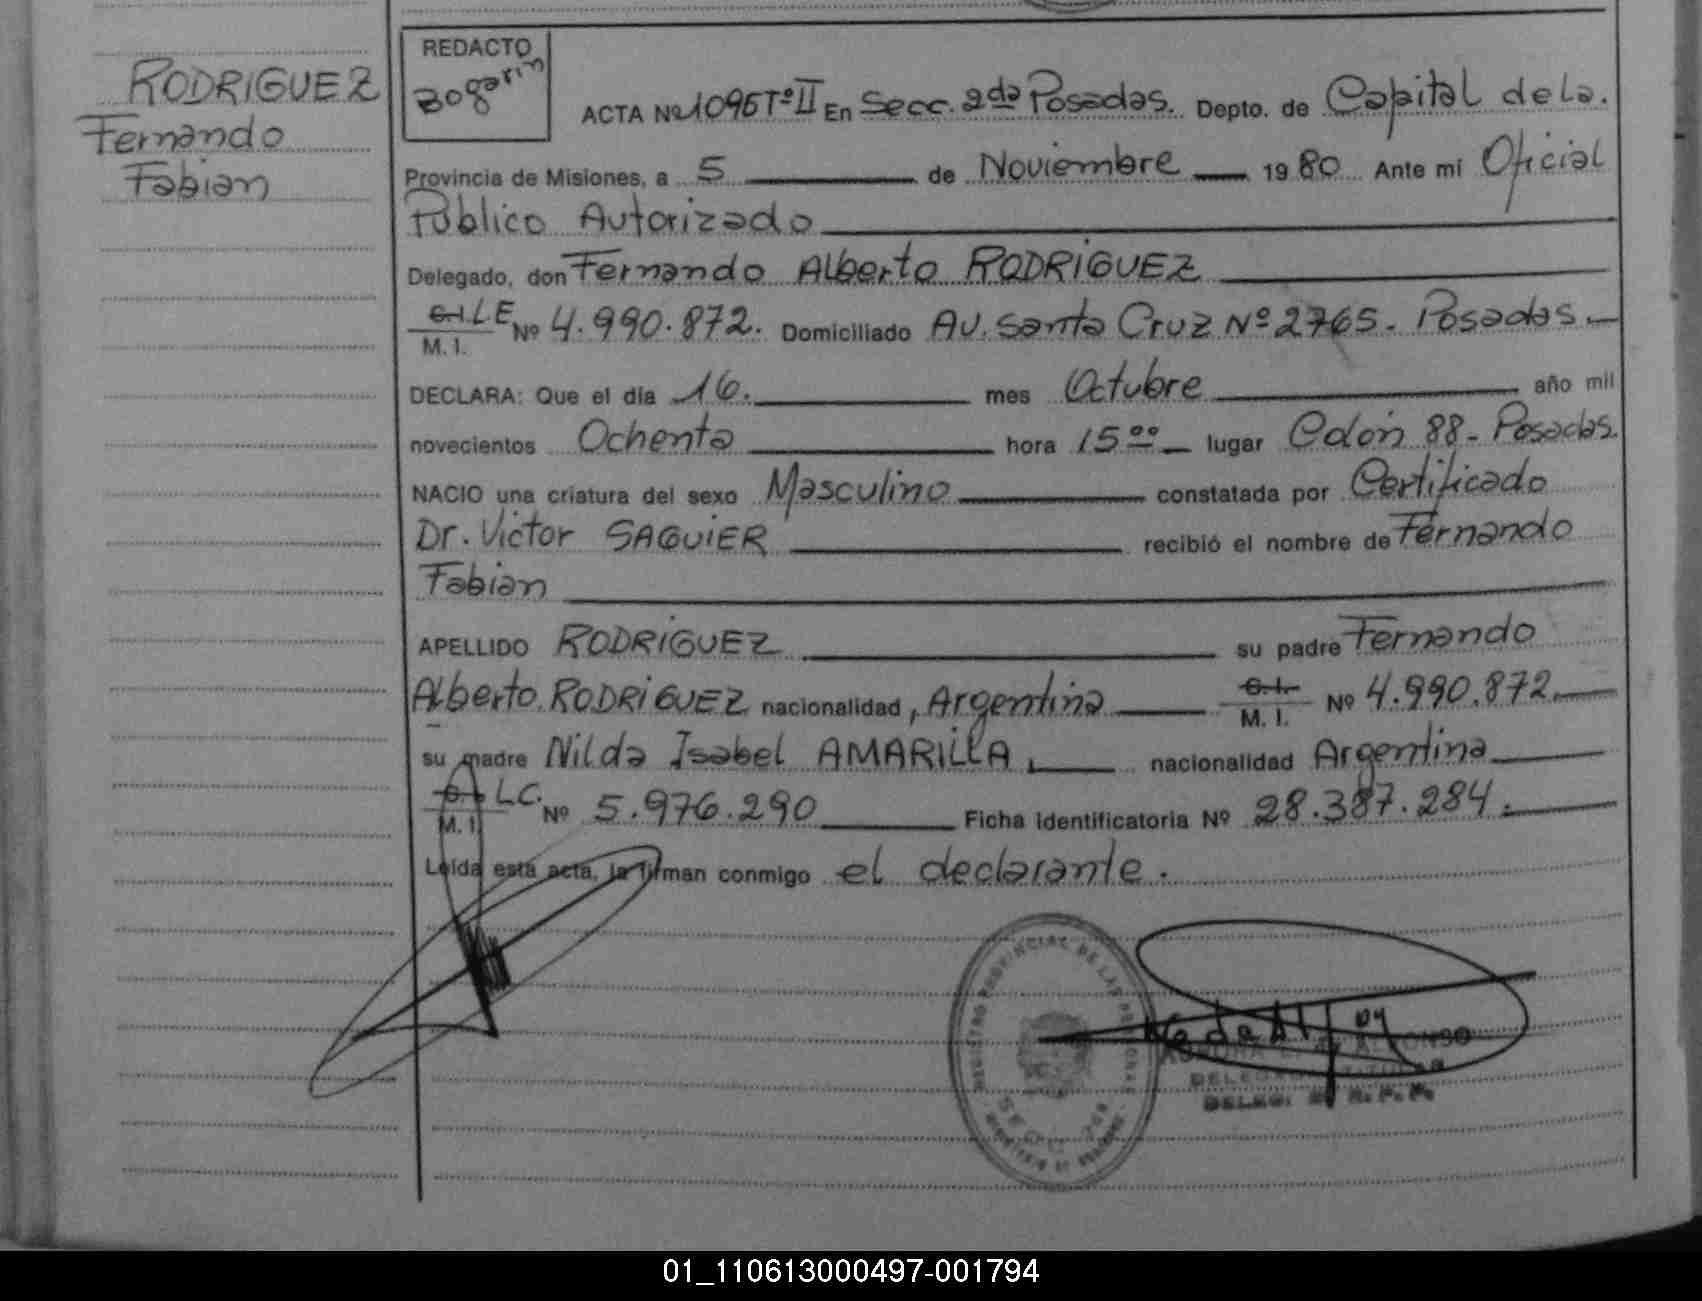 RODRIGUEZ
Fernando
Fabian
REDACTO
Bogarin
ACTA Nº 1096 Tº II En Secc. 2da Posadas. Depto. de Capital de La.
Provincia de Misiones, a 5 de Noviembre 19 80 Ante mi Oficial
Público Autorizado
Delegado, don Fernando Alberto RODRIGUEZ
C.I. LE Nº 4.990.872. Domiciliado AV. Santa Cruz Nº 2765. Posadas
M. I.
DECLARA: Que el día 16. mes Octubre año mil
novecientos Ochenta hora 15ºº lugar Colón 88 - Posadas.
NACIO una criatura del sexo Masculino constatada por Certificado
Dr. Victor SAGUIER recibió el nombre de Fernando
Fabian
APELLIDO RODRIGUEZ su padre Fernando
Alberto RODRIGUEZ nacionalidad, Argentina C.I. Nº 4.990.872
M. I.
su madre Nilda Isabel AMARILLA, nacionalidad Argentina
C.I. LC. Nº 5.976.290 Ficha Identificatoria Nº 28.387.284.
M. I.
Leída esta acta, la firman conmigo el declarante.
REGISTRO PROVINCIAL DE LAS PERSONAS
SECC. 2da
DELEGADA TITULAR
DELEG. R. P. P.
01_110613000497-001794